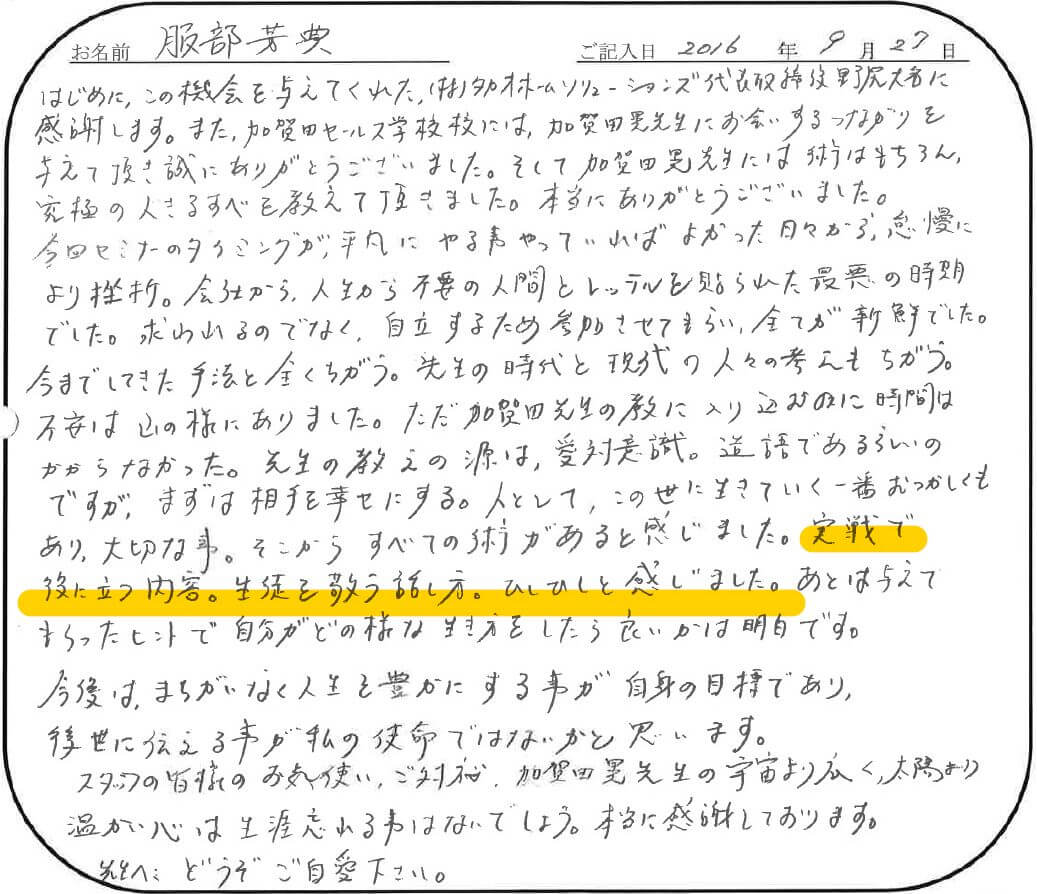 お名前 服部芳典 ご記入日 2016 年 9 月 27 日
はじめに、この機会を与えてくれた、(株)タカオホームソリューションズ代表取締役野尻大者に
感謝します。また、加賀田セールス学校校には、加賀田晃先生にお会いするつながりを
与えて頂き誠にありがとうございました。そして加賀田晃先生には術はもちろん、
究極の人きるすべを教えて頂きました。本当にありがとうございました。
今回セミナーのタイミングが、平凡にやる事やっていればよかった日々から、怠慢に
より挫折。会社から、人生から不要の人間とレッテルを貼られた最悪の時期
でした。求われるのでなく、自立するため参加させてもらい、全てが新鮮でした。
今までしてきた手法と全くちがう。先生の時代と現代の人々の考えもちがう。
不安は山の様にありました。ただ加賀田先生の教に入り込むのに時間は
かからなかった。先生の教えの源は、愛対意識。造語であるらしいの
ですが、まずは相手を幸せにする。人として、この世に生きていく一番むつかしくも
あり、大切な事。そこからすべての術があると感じました。実戦で
役に立つ内容。生徒を敬う話し方。ひしひしと感じました。あとは与えて
もらったヒントで自分がどの様な生き方をしたら良いかは明白です。
今後は、まちがいなく人生を豊かにする事が自身の目標であり、
後世に伝える事が私の使命ではないかと思います。
スタッフの皆様のお気使い、ご対応、加賀田晃先生の宇宙より広く、太陽より
温かい心は生涯忘れる事はないでしょう。本当に感謝しております。
先生へ: どうぞご自愛下さい。